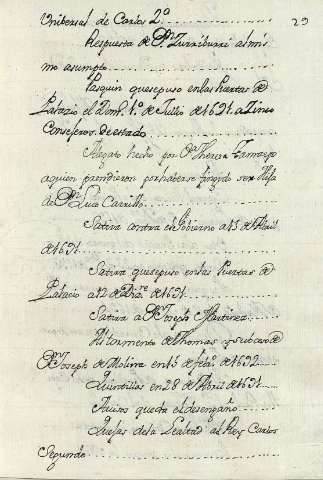 Universal de Carlos 2º
29
Respuesta de Dn Zurriburri al mis
mo asumpto
Pasquin que se puso en las Puertas de
Palazio el Dom. 1º de Julio de 1691. a Zinco
Consejeros de estado
Alegato hecho por Da Theresa Tamayo
a quien prendieron por haberse fingido ser Hija
de Dn Luis Carrillo
Satira contra el Gobierno a 13 de Abril
de 1691
Satira que se puso en las Puertas de
Palacio a 12 de Dizre de 1691
Satira a Dn Joseph Martinez
Al tormento de Thomas y suceso de
Dn Joseph de Molina en 15 de feb. de 1692
Quintillas en 28 de Abril de 1691
Avisos que da el desengaño
Quejas de la Lealtad al Rey Carlos
Segundo